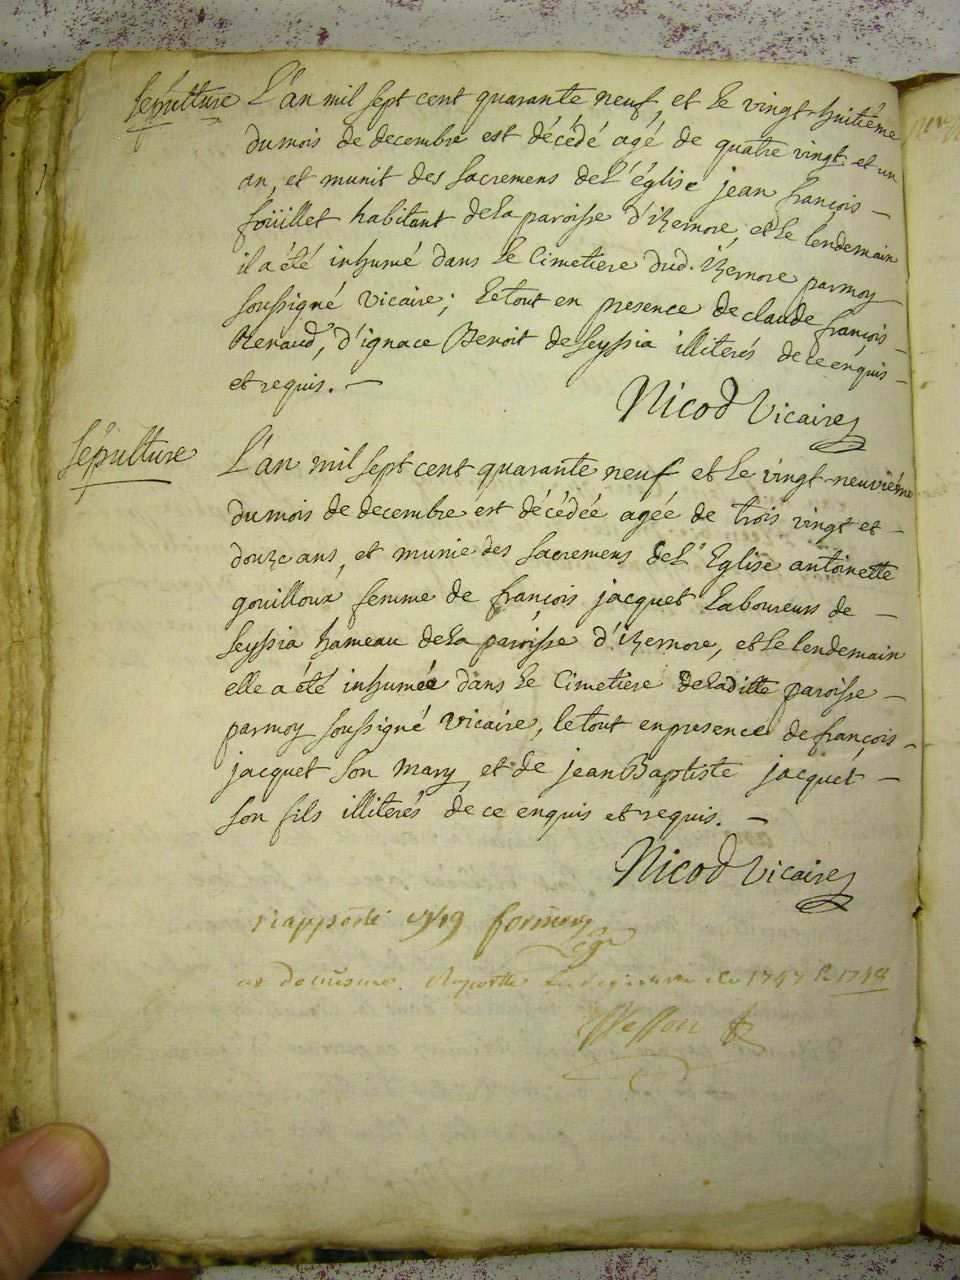 sepulture L'an mil sept cent quarante neuf, et le vingt huitiéme
du mois de decembre est décédé agé de quatre vingt et un
an, et munit des sacremens de L'église jean françois
foüillet habitant de la paroisse d'izernore, et le lendemain
il a été inhumé dans le Cimetiere dud. izernore par moy
soussigné vicaire; le tout en presence de claude françois
Renaud, d'ignace Benoit de seyssia illiterés de ce enquis
et requis.
Nicod Vicaire
sépulture L'an mil sept cent quarante neuf et le vingt neuviéme
du mois de decembre est décédée agée de trois vingt et
douze ans, et munie des sacremens de L'Eglise antoinette
gouilloux femme de françois jacquet Laboureur de
seyssia hameau de la paroisse d'izernore, et le lendemain
elle a été inhumée dans le Cimetiere de la ditte paroisse
par moy soussigné vicaire, le tout en presence de françois
jacquet son mary, et de jean Baptiste jacquet
son fils illiterés de ce enquis et requis.
Nicod Vicaire
rapporté
1747 1748